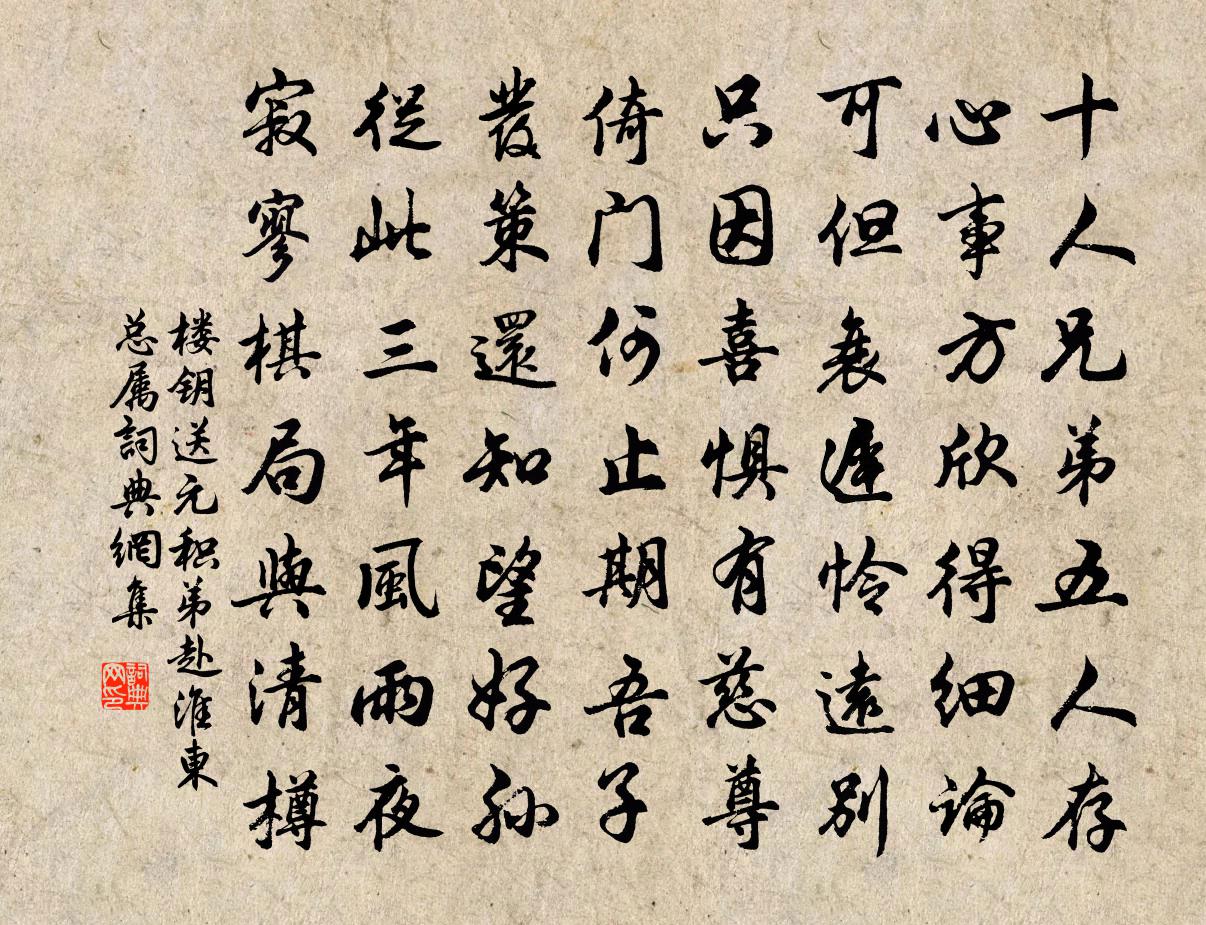 十人兄弟五人存
心事方欣得细論
可但衰遲怜遠别
只因喜惧有慈尊
倚门何止期吾子
發策還知望好孙
從此三年風雨夜
寂寥棋局與清樽
楼钥送元积弟赴淮東
总属詞典網集
詞典网印